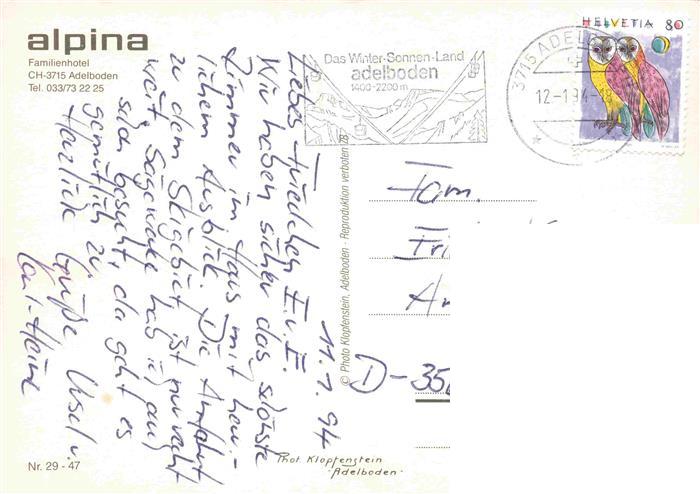 alpina
Familienhotel
CH-3715 Adelboden
Tel. 033/73 22 25
Das Winter-Sonnen-Land
adelboden
1400-2200 m
3715 ADEL
12-1.94-18
HELVETIA 80
11. 1. 94
Liebes Friedchen I. u. I.
Wir haben sicher das schönste
Zimmer im Haus mit herr-
lichem Ausblick. Die Anfahrt
zu dem Skigebiet ist nur recht
weit. Sägewerke hab ich auch
schon besucht, da geht es
gemütlich zu.
Herzliche Grüße Usel u.
Karl-Heinz
© Photo Klopfenstein, Adelboden - Reproduktion verboten
Fam.
Fri
An
D-35
Nr. 29 - 47
Phot. Klopfenstein
Adelboden